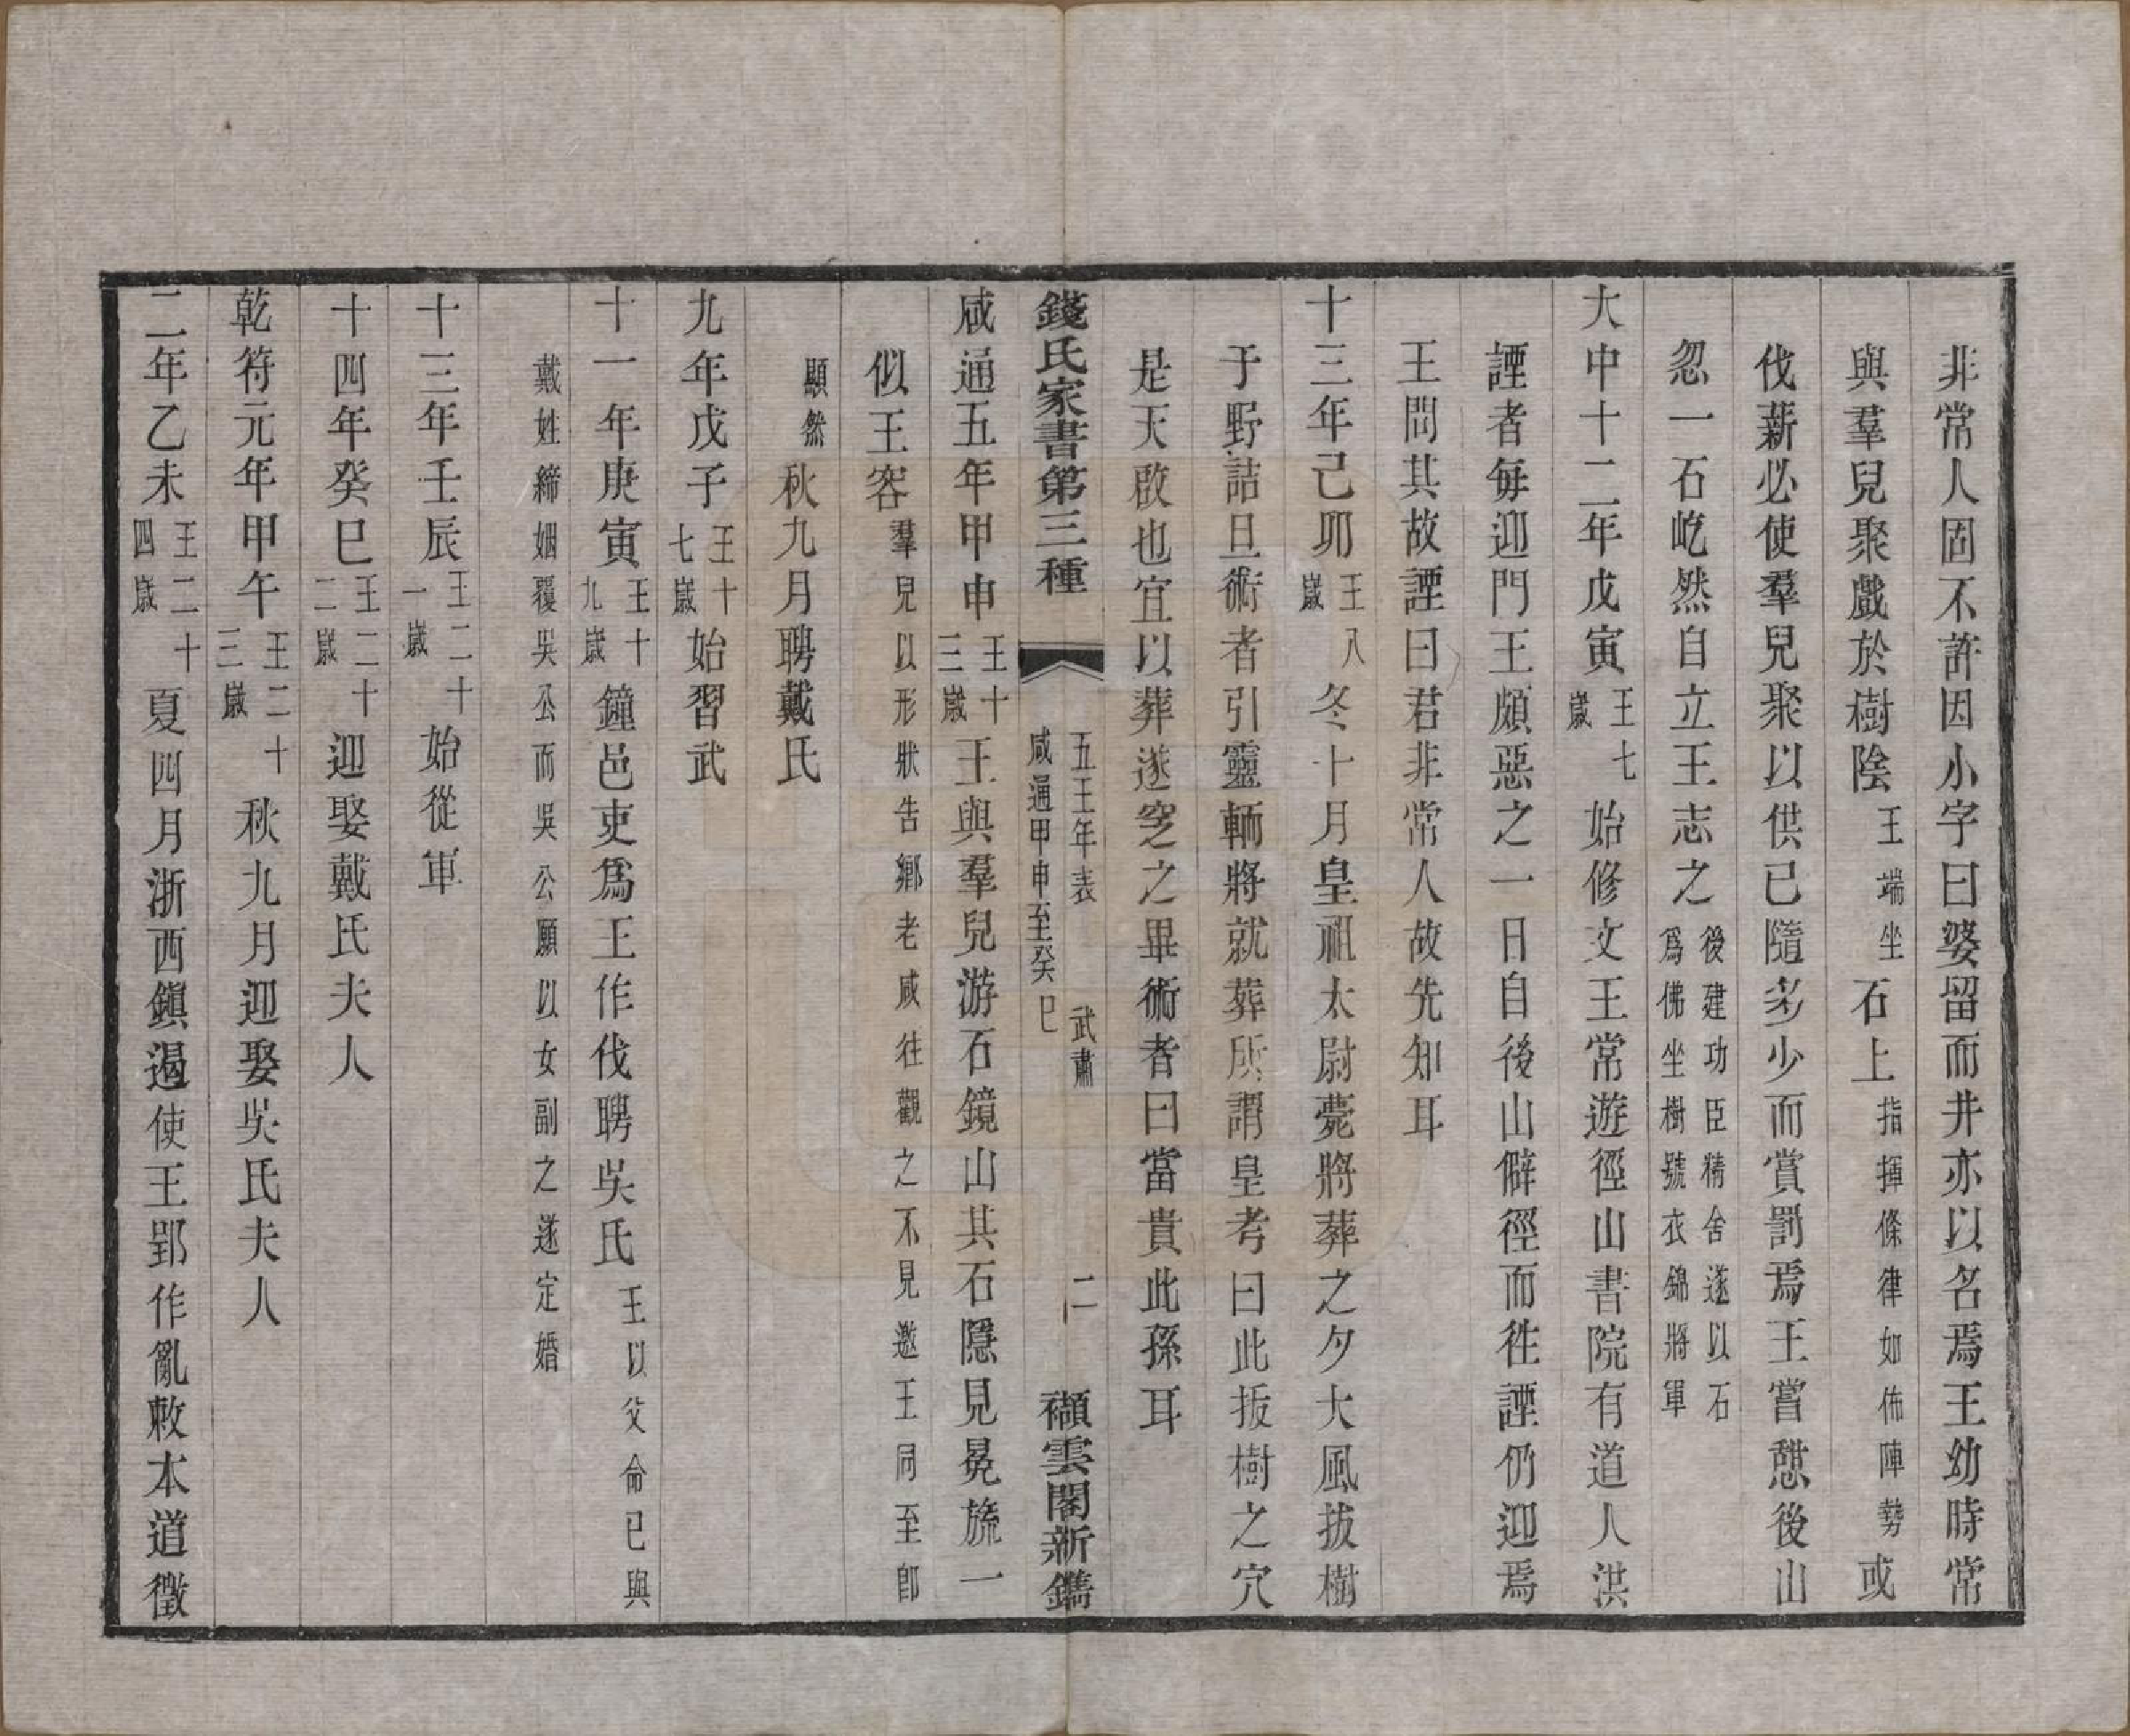 非常人固不許因小字曰婆留而井亦以名焉王幼時常
與羣兒聚戲於樹陰王端坐石上指揮條律如佈陣勢或
伐薪必使羣兒聚以供已隨多少而賞罰焉王嘗憇後山
忽一石屹然自立王志之後建功臣精舍遂以石爲佛坐樹號衣錦將軍
大中十二年戊寅王七歲始修文王常遊徑山書院有道人洪
諲者每迎門王頗惡之一日自後山僻徑而徃諲仍迎焉
王問其故諲曰君非常人故先知耳
十三年己卯王八歲冬十月皇祖太尉薨將葬之夕大風拔樹
于野詰旦術者引靈輀將就葬所謂皇考曰此扳樹之穴
是天啟也宜以葬遂窆之畢術者曰當貴此孫耳
錢氏家書第三種
五王年表 武肅
咸通甲申至癸巳
二
襭雲閣新鐫
咸通五年甲申王十三歲王與羣兒游石鏡山其石隱見冕旒一
似王容羣兒以形狀告鄉老咸徃觀之不見邀王同至卽
顯然秋九月聘戴氏
九年戊子王十七歲始習武
十一年庚寅王十九歲鐘邑吏爲王作伐聘吳氏王以父命已與
戴姓締姻覆吳公而吳公願以女副之遂定婚
十三年壬辰王二十一歲始從軍
十四年癸巳王二十二歲迎娶戴氏夫人
乾符元年甲午王二十三歲秋九月迎娶吳氏夫人
二年乙未王二十四歲夏四月浙西鎭遏使王郢作亂敕本道徵